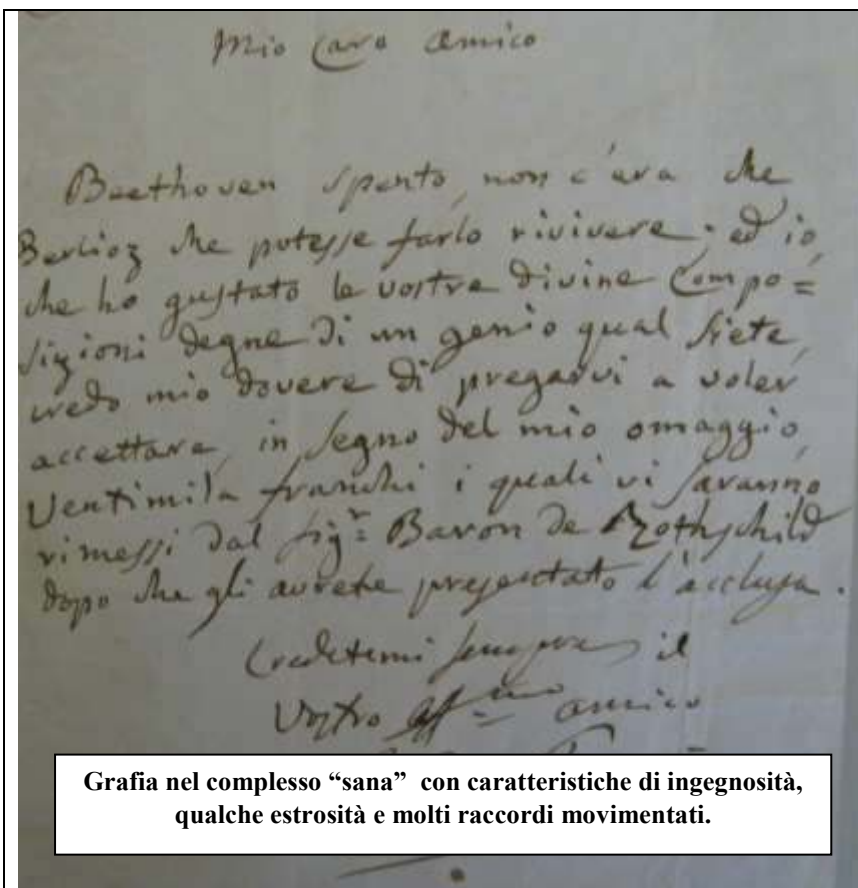 Mio Caro Amico
Beethoven spento, non c'era che
Berlioz che potesse farlo rivivere; ed io,
che ho gustato le vostre divine Compo=
sizioni degne di un genio qual siete,
credo mio dovere di pregarvi a voler
accettare, in segno del mio omaggio,
Ventimila franchi i quali vi saranno
rimessi dal Sigr. Baron de Rothschild
dopo che gli avrete presentato l'acclusa.
Credetemi sempre il
Vostro affmo amico
Grafia nel complesso “sana” con caratteristiche di ingegnosità,
qualche estrosità e molti raccordi movimentati.